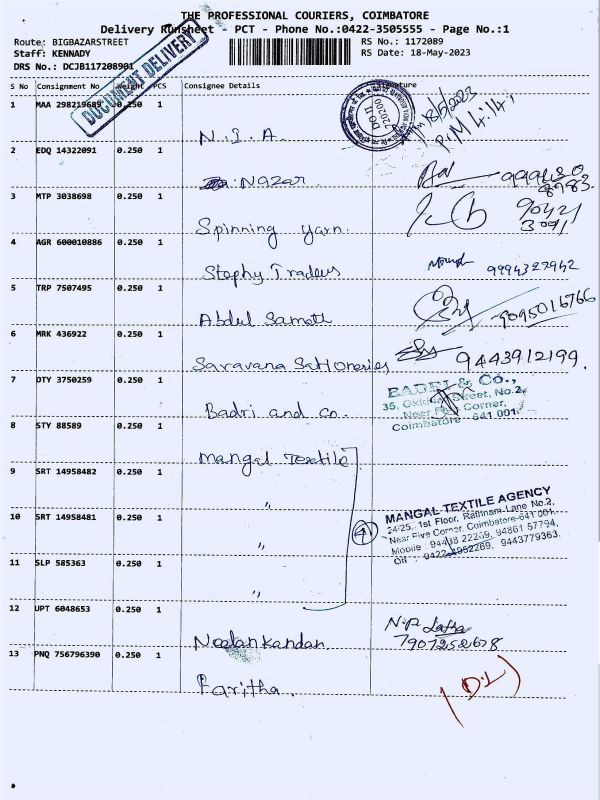 THE PROFESSIONAL COURIERS, COIMBATORE
Delivery Runsheet - PCT - Phone No.:0422-3505555 - Page No.:1
Route: BIGBAZARSTREET RS No.: 1172089
Staff: KENNADY RS Date: 18-May-2023
DRS No.: DCJB117208901
DOCUMENT DELIVERY
S No Consignment No Weight PCS Consignee Details Signature
1 MAA 298219689 0.250 1 N.I.A. 18/5/2023
P.M 4:14
2 EDQ 14322091 0.250 1 Nazar 999430
8983
3 MTP 3038698 0.250 1 Spinning yarn. 90421
3091
4 AGR 600010886 0.250 1 Stephy Traders 9994327942
5 TRP 7507495 0.250 1 Abdul Samath 9095016766
6 MRK 436922 0.250 1 Saravana Sationeries 9443912199.
7 DTY 3750259 0.250 1 Badri and co. BADRI & Co.,
Street, No.2,
Near Five Corner,
Coimbatore - 641 001.
8 STY 88589 0.250 1 Mangal Textile
9 SRT 14958482 0.250 1 "
10 SRT 14958481 0.250 1 " 4 MANGAL TEXTILE AGENCY
24-25, 1st Floor, Rattinam Lane No.2,
Near Five Corner, Coimbatore-641 001.
Mobile : 94438 22259, 94861 57794,
Off : 0422-4952269, 9443779363.
11 SLP 585363 0.250 1 "
12 UPT 6048653 0.250 1 Neelankandan. N.P. Latha
7907252678
13 PNQ 756796390 0.250 1 Faritha. (D.L)